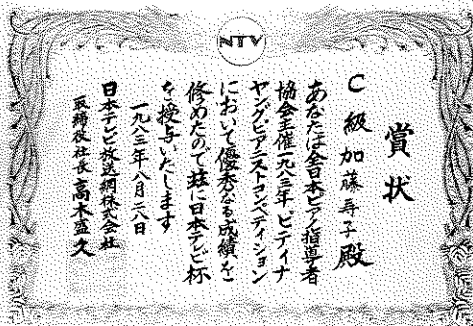 NTV
賞状
C級 加藤 殿
あなたは全日本ピアノ指導者
協会主催一九八三年 ピティナ
ヤング・ピアニストコンペティション
において優秀なる成績を
修めたので玆に日本テレビ杯
を授与いたします
一九八三年八月二八日
日本テレビ放送網株式会社
取締役社長 高木盛久